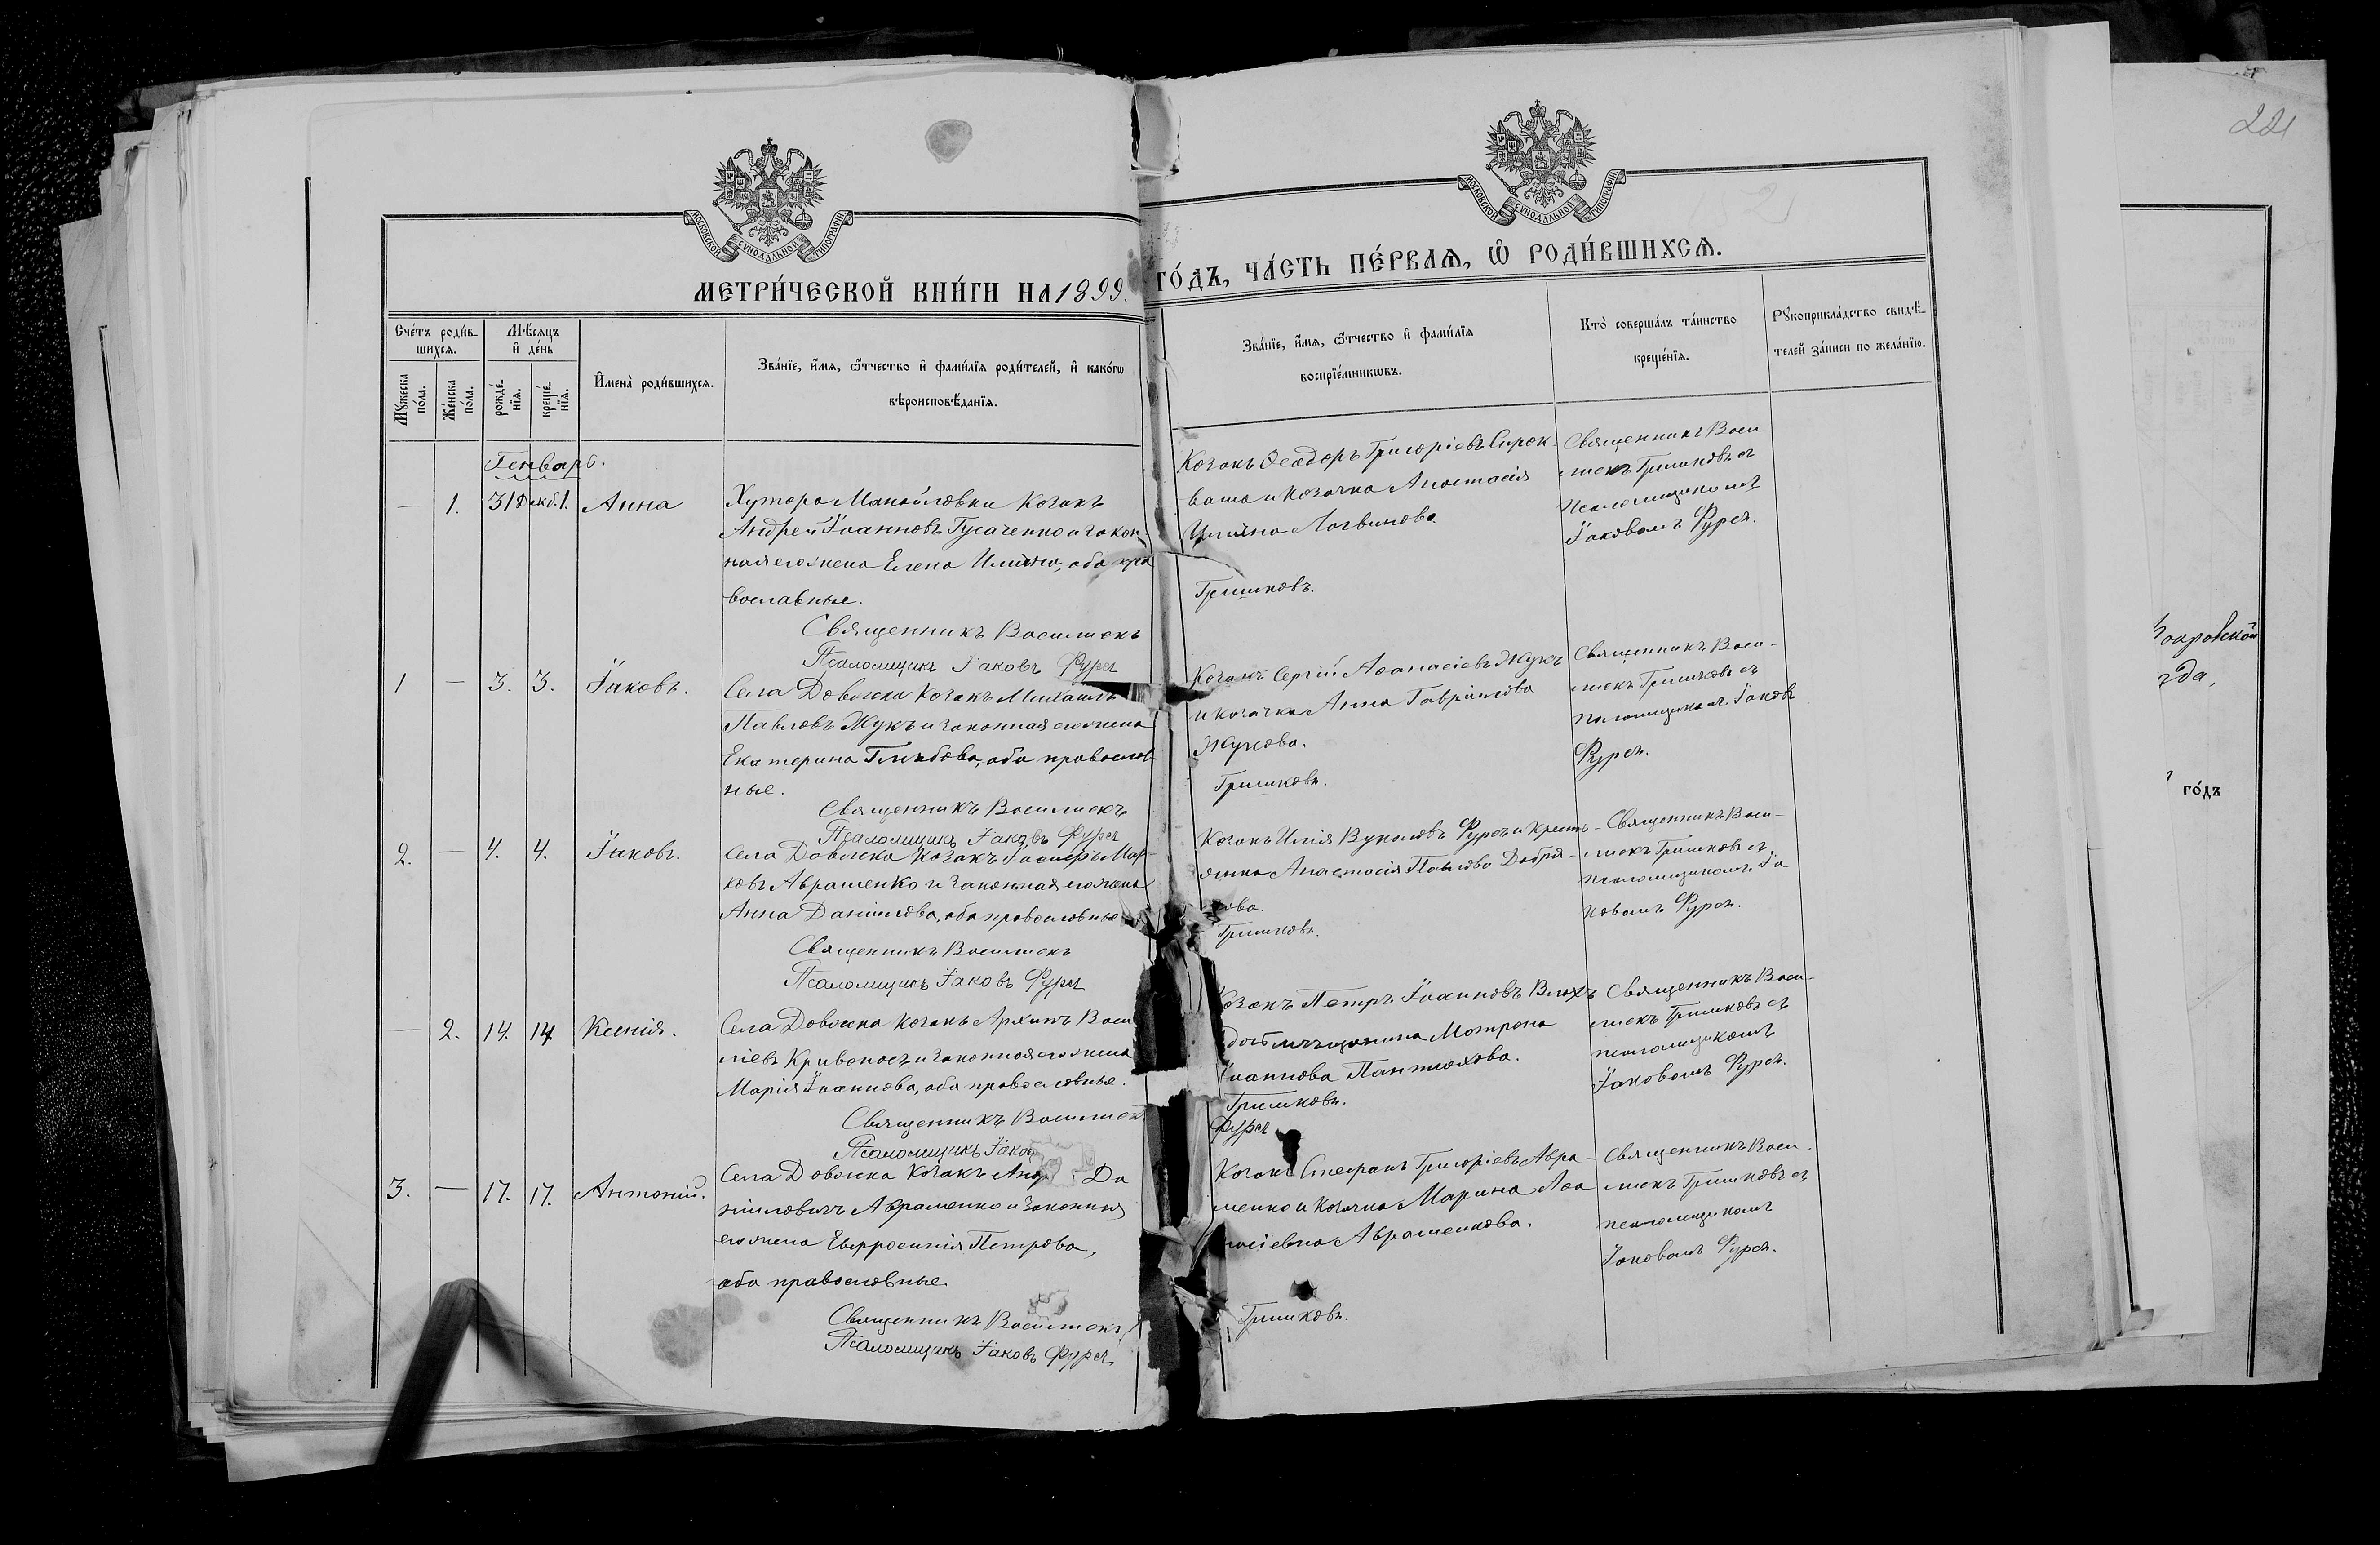 221
МОСКОВСКОЙ СѴНОДАЛЬНОЙ ТИПОГРАФІИ
МОСКОВСКОЙ СѴНОДАЛЬНОЙ ТИПОГРАФІИ
МЕТРИ́ЧЕСКОЙ КНИ́ГИ НА 1899. ГО́ДЪ, ЧА́СТЬ ПЕ́РВАѦ, Ѡ҆ РОДИ́ВШИХСѦ.
Сче́тъ роди́в-
шихсѧ.
Мꙋ́жеска по́ла.
Же́нска по́ла.
Мѣ́сѧцъ и҆ де́нь
рожде́-нїѧ.
креще́-нїѧ.
И҆мена̀ роди́вшихсѧ.
Зва́нїе, и҆́мѧ, ѻ҆́тчество и҆ фами́лїѧ роди́телей, и҆ како́гѡ
вѣроисповѣ́данїѧ.
Зва́нїе, и҆́мѧ, ѻ҆́тчество и҆ фами́лїѧ
воспрїе́мникѡвъ.
Кто̀ соверша́лъ та́инство
креще́нїѧ.
Рꙋкоприкла́дство свидѣ́-
телей за́писи по жела́нїю.
Генварь.
— 1. 31 Декб. 1. Анна
Хутора Манойловки Козакъ
Андрей Іоанновъ Гусаченко и закон
ная его жена Елена Ильина, оба пра
вославные.
Священникъ Василискъ
Псаломщикъ Іаковъ Фурса
Козакъ Ѳеодоръ Григоріевъ Сирок
ваша и козачка Анастасія
Ильина Логвинова.
Гришковъ.
Священникъ Васи
лискъ Гришковъ съ
псаломщикомъ
Іаковомъ Фурса.
1 — 3. 3. Іаковъ.
Села Довжка Козакъ Михаилъ
Павловъ Жукъ и законная его жена
Екатерина Глѣбова, оба православ
ные.
Священникъ Василискъ
Псаломщикъ Іаковъ Фурса
Козакъ Сергій Аѳанасіевъ Жукъ
и козачка Анна Гавріилова
Жукова.
Гришковъ.
Священникъ Васи-
лискъ Гришковъ съ
псаломщикомъ Іаковъ
Фурса.
2. — 4. 4. Іаковъ.
Села Довжка Козакъ Іосифъ Мар-
ковъ Авраменко и законная его жена
Анна Даніилова, оба православные
Священникъ Василискъ
Псаломщикъ Іаковъ Фурса
Козакъ Илія Вуколовъ Фурса и крестъ-
янка Анастасія Павлова Добря-
кова.
Гришковъ.
Священникъ Васи-
лискъ Гришковъ съ
псаломщикомъ Іа
ковомъ Фурса.
— 2. 14. 14. Ксенія.
Села Довжка козакъ Архипъ Васи
ліевъ Кривоносъ и законная его жена
Марія Іоаннова, оба православные.
Священникъ Василискъ
Псаломщикъ Іаков
Козакъ Петръ Іоанновъ
мѣщанина Матрона
Іоаннова Пантюхова.
Гришковъ.
Фурса
Священникъ Васи-
лискъ Гришковъ съ
псаломщикомъ
Іаковомъ Фурса.
3. — 17. 17. Антоній.
Села Довжка Козакъ Анд Да
ніиловичъ Авраменко и законная
его жена Евфросинія Петрова,
оба православные.
Священникъ Василискъ
Псаломщикъ Іаковъ Фурса
Козакъ Стефанъ Григоріевъ Авра-
менко и козачка Марина Аѳа
насіевна Авраменкова.
Гришковъ.
Священникъ Васи-
лискъ Гришковъ съ
псаломщикомъ
Іаковомъ Фурса.
го́дъ